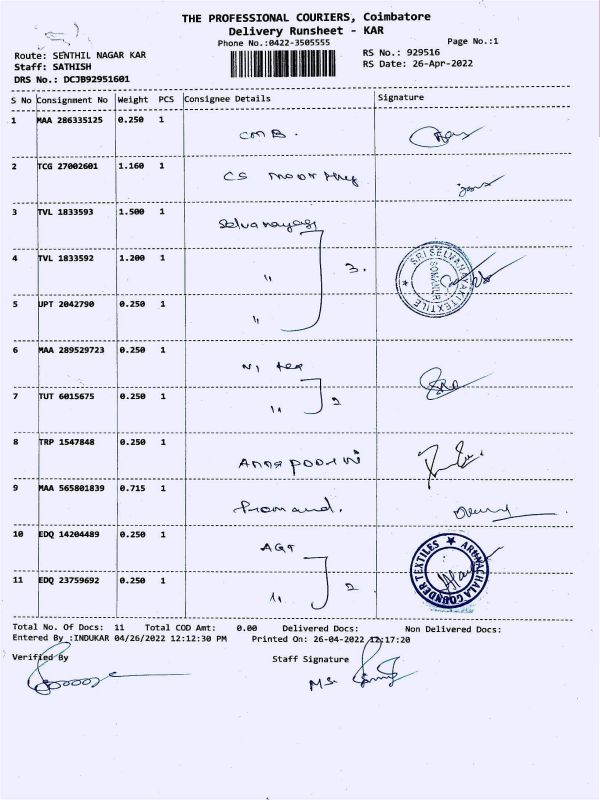 THE PROFESSIONAL COURIERS, Coimbatore
Delivery Runsheet - KAR
Phone No.:0422-3505555
Page No.:1
Route: SENTHIL NAGAR KAR
RS No.: 929516
Staff: SATHISH
RS Date: 26-Apr-2022
DRS No.: DCJB92951601
S No Consignment No Weight PCS Consignee Details Signature
1 MAA 286335125 0.250 1
CMB.
2 TCG 27002601 1.160 1
CS Moorthy
3 TVL 1833593 1.500 1
Selvanayagi
4 TVL 1833592 1.200 1 " 3.
SRI SELVANAYAKI TEXTILE
SOMANUR
5 UPT 2042790 0.250 1 "
6 MAA 289529723 0.250 1
7 TUT 6015675 0.250 1 " 2
8 TRP 1547848 0.250 1
Annapoorni
9 MAA 565801839 0.715 1
10 EDQ 14204489 0.250 1
AGT
ARUNACHALA GOUNDER TEXTILES
11 EDQ 23759692 0.250 1 " 2
Total No. Of Docs: 11 Total COD Amt: 0.00 Delivered Docs: Non Delivered Docs:
Entered By :INDUKAR 04/26/2022 12:12:30 PM Printed On: 26-04-2022 12:17:20
Verified By Staff Signature